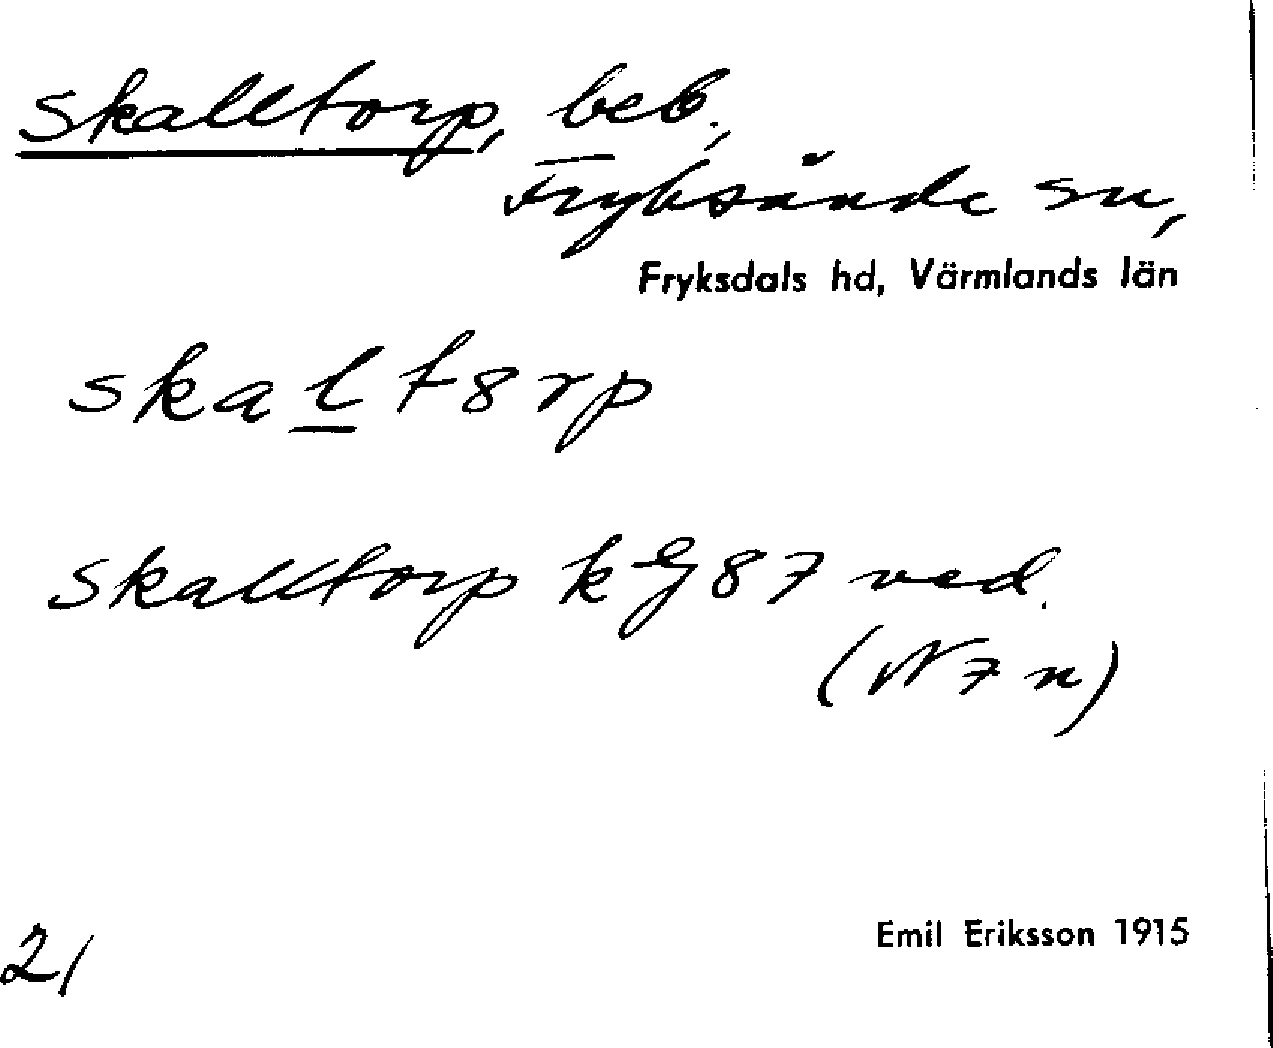 Skalltorp, beb.,
Fryksände sn,
Fryksdals hd, Värmlands län
skalt8rp
Skalltorp kG87 ved.
(N7n)
Emil Eriksson 1915
21